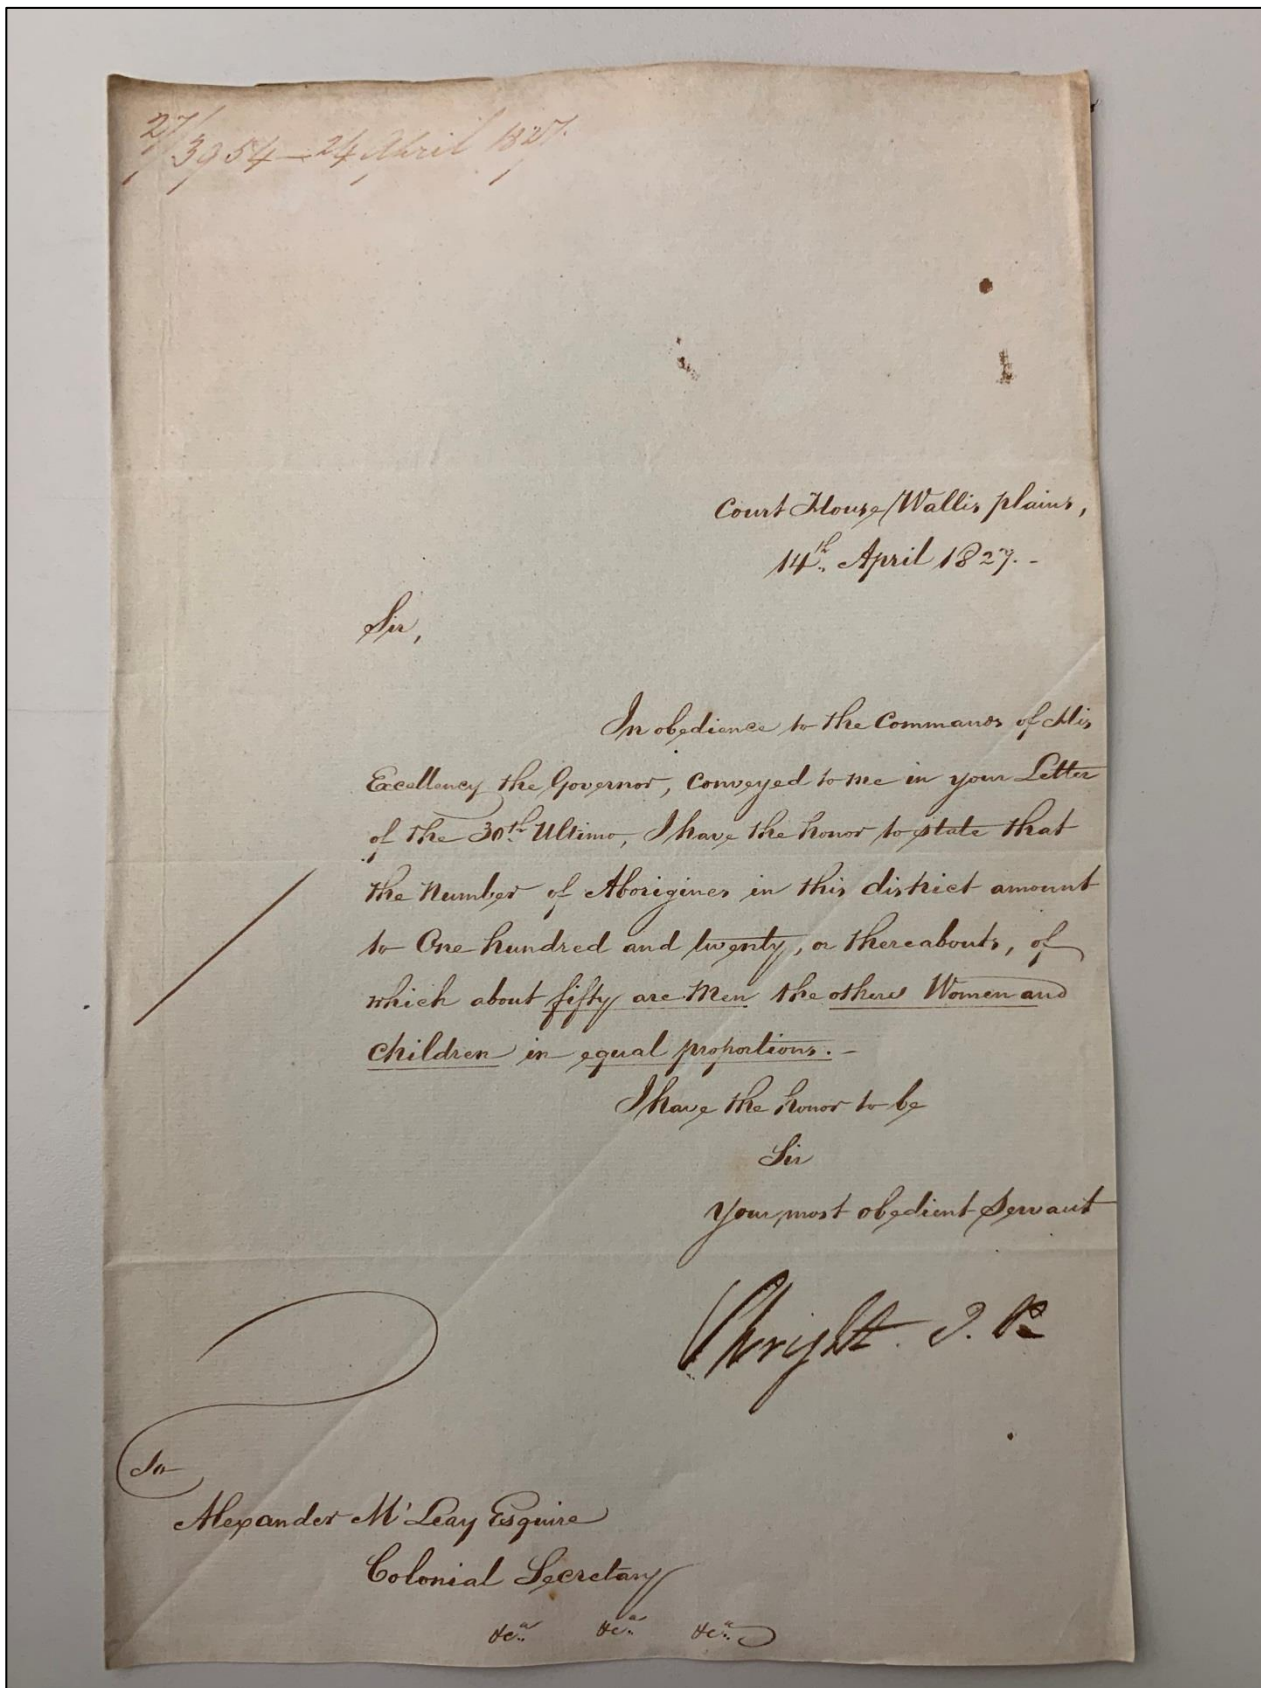 27/3954 — 24 April 1827.
Court House, Wallis plains,
14th. April 1827. -
Sir,
In obedience to the Commands of His
Excellency the Governor, conveyed to me in your Letter
of the 30th. Ultimo, I have the honor to state that
the Number of Aborigines in this district amount
to One hundred and twenty, or thereabouts, of
which about fifty are Men the others Women and
children in equal proportions. -
I have the honor to be
Sir
your most obedient Servant
Wright. J. P.
To
Alexander M'Leay Esquire
Colonial Secretary
&ca. &ca. &ca.